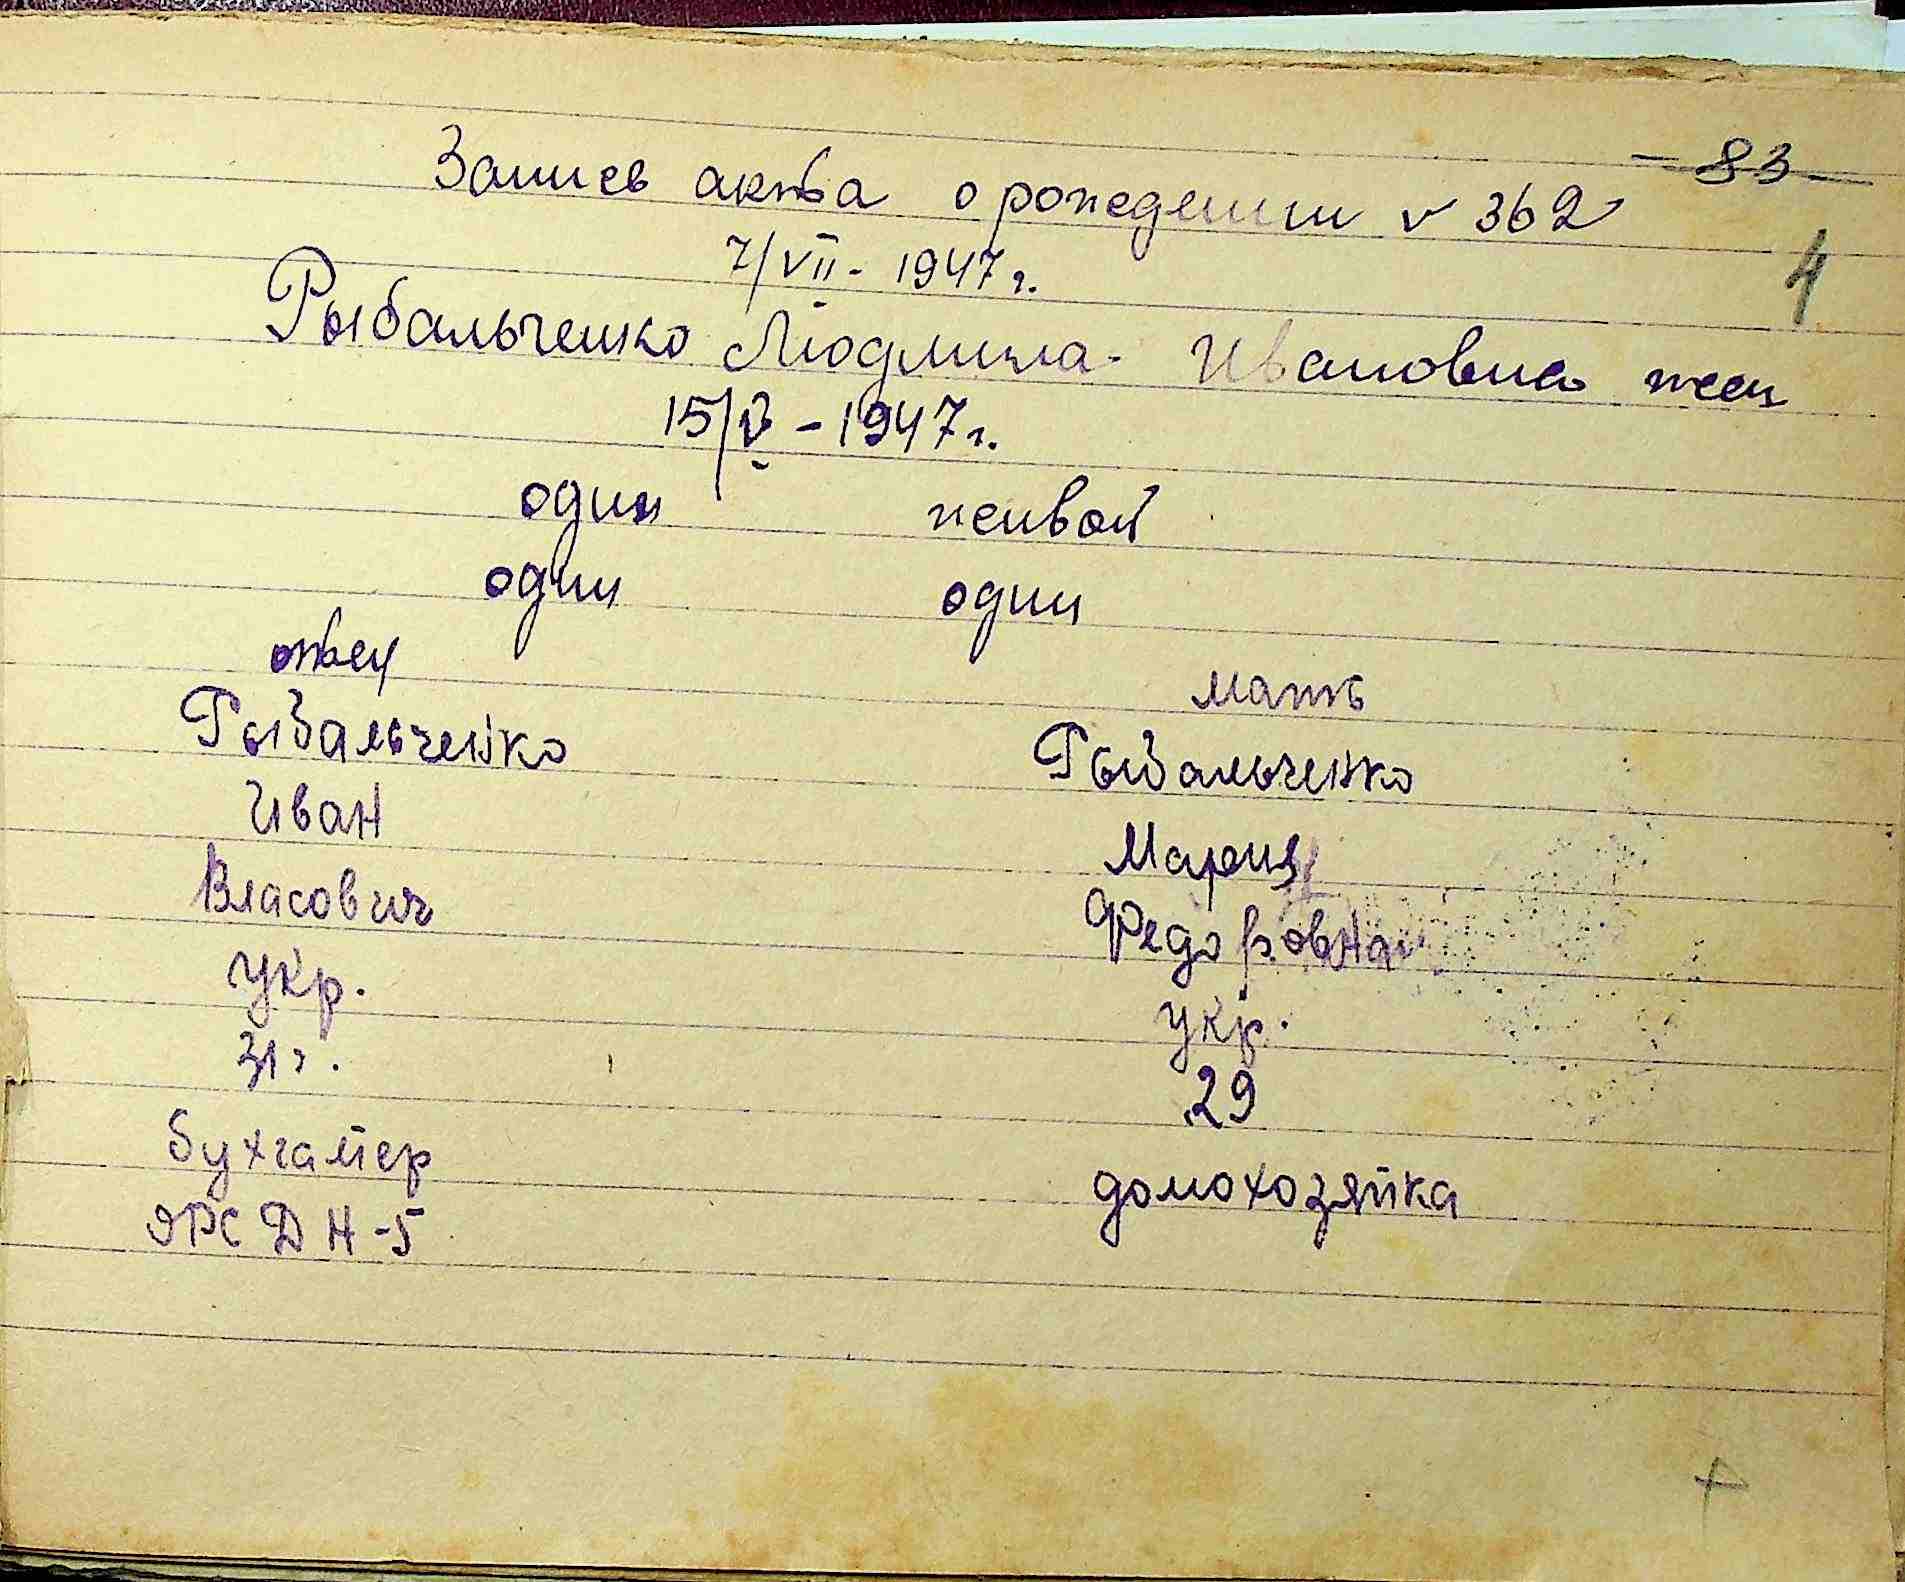 83
Запись акта о рождении № 362
4
7/VII - 1947 г.
Рыбальченко Людмила Ивановна жен
15/V - 1947 г.
один живой
один один
отец мать
Рыбальченко Рыбальченко
Иван Мария
Власович Федоровна
укр. укр.
31 г. 29
бухгалтер домохозяйка
ЯРСДН-5